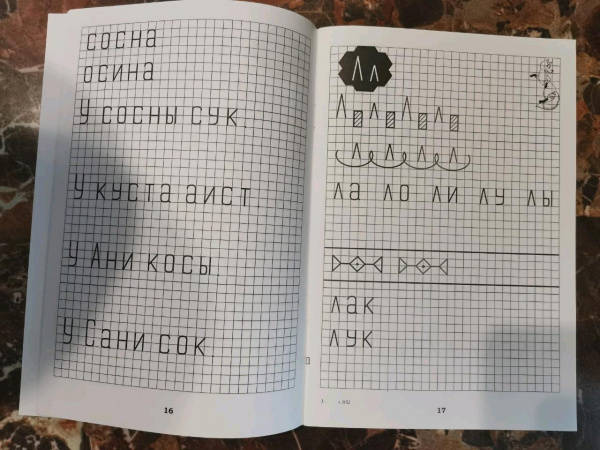 сосна
осина
У сосны сук.
У куста аист.
У Ани косы
У Сани сок.
16
Л л
Л л Л л
л л л л
ла ло ли лу лы
лак
лук
17